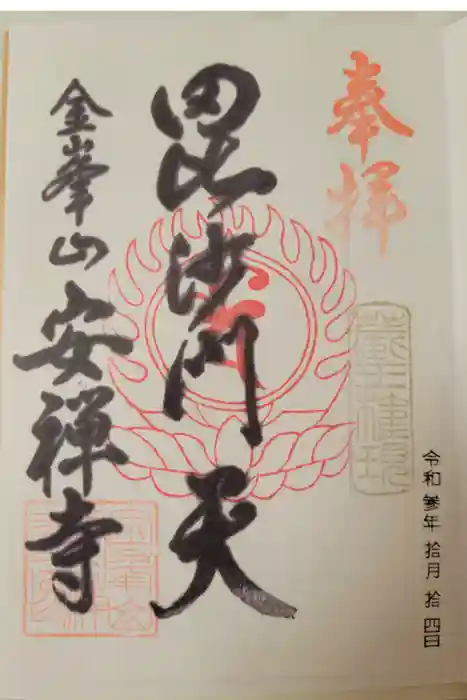 奉拝
蔵王権現
令和参年拾月拾四日
毘沙門天
金峯山安禅寺